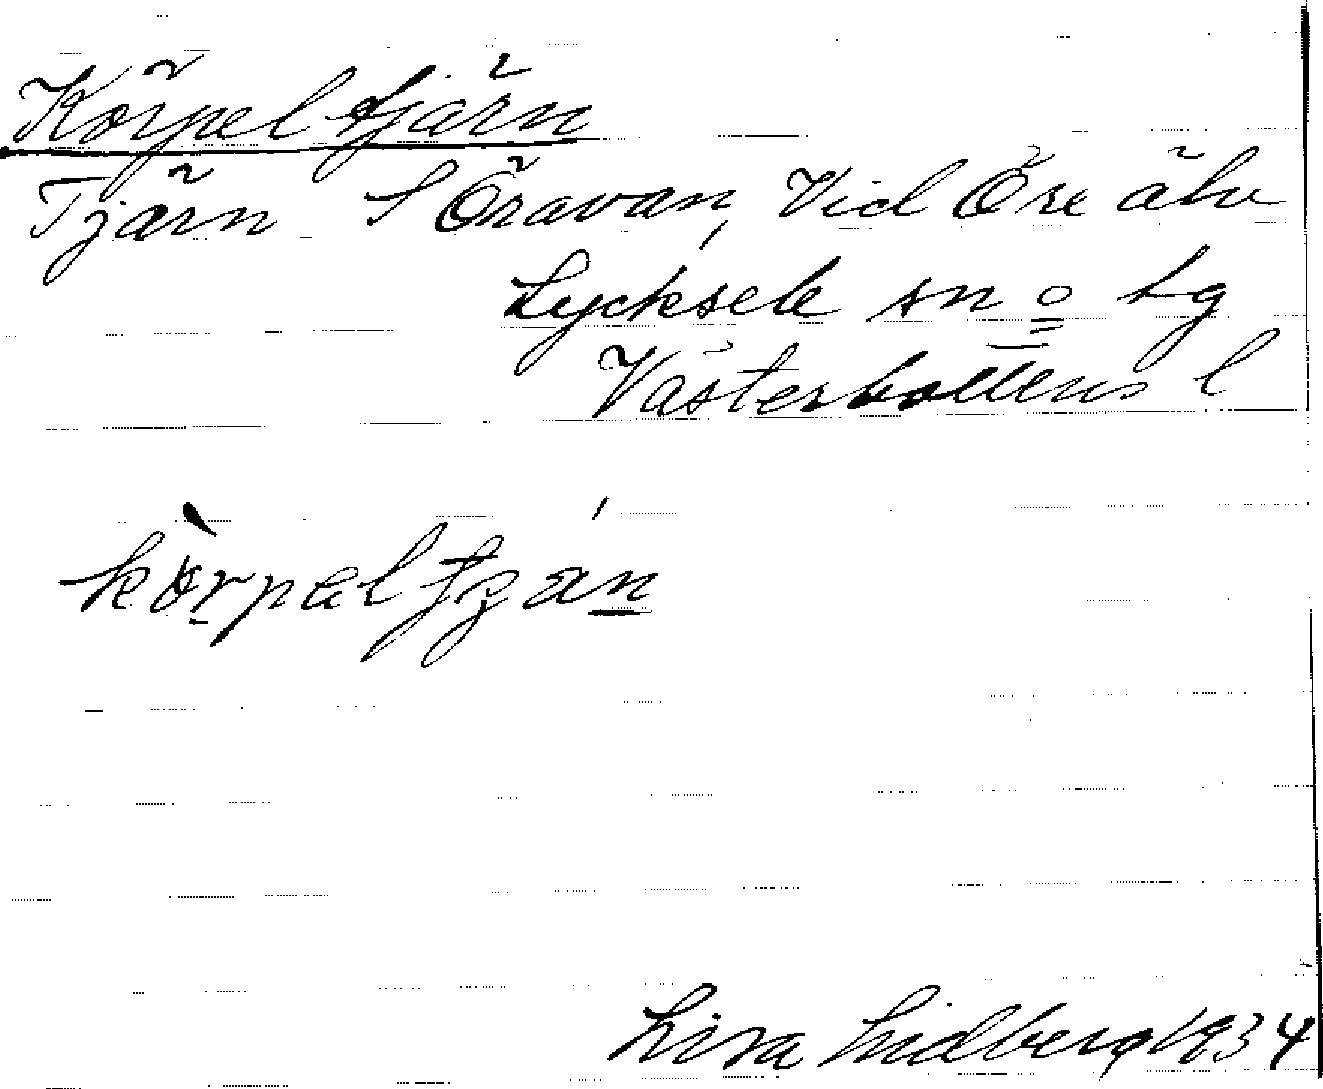 Körpeltjärn
Tjärn S Öravan, Vid Öre älv
Lycksele sn o lg
Västerbottens l
kòrpel tjá n
Lisa Lidberg 1934